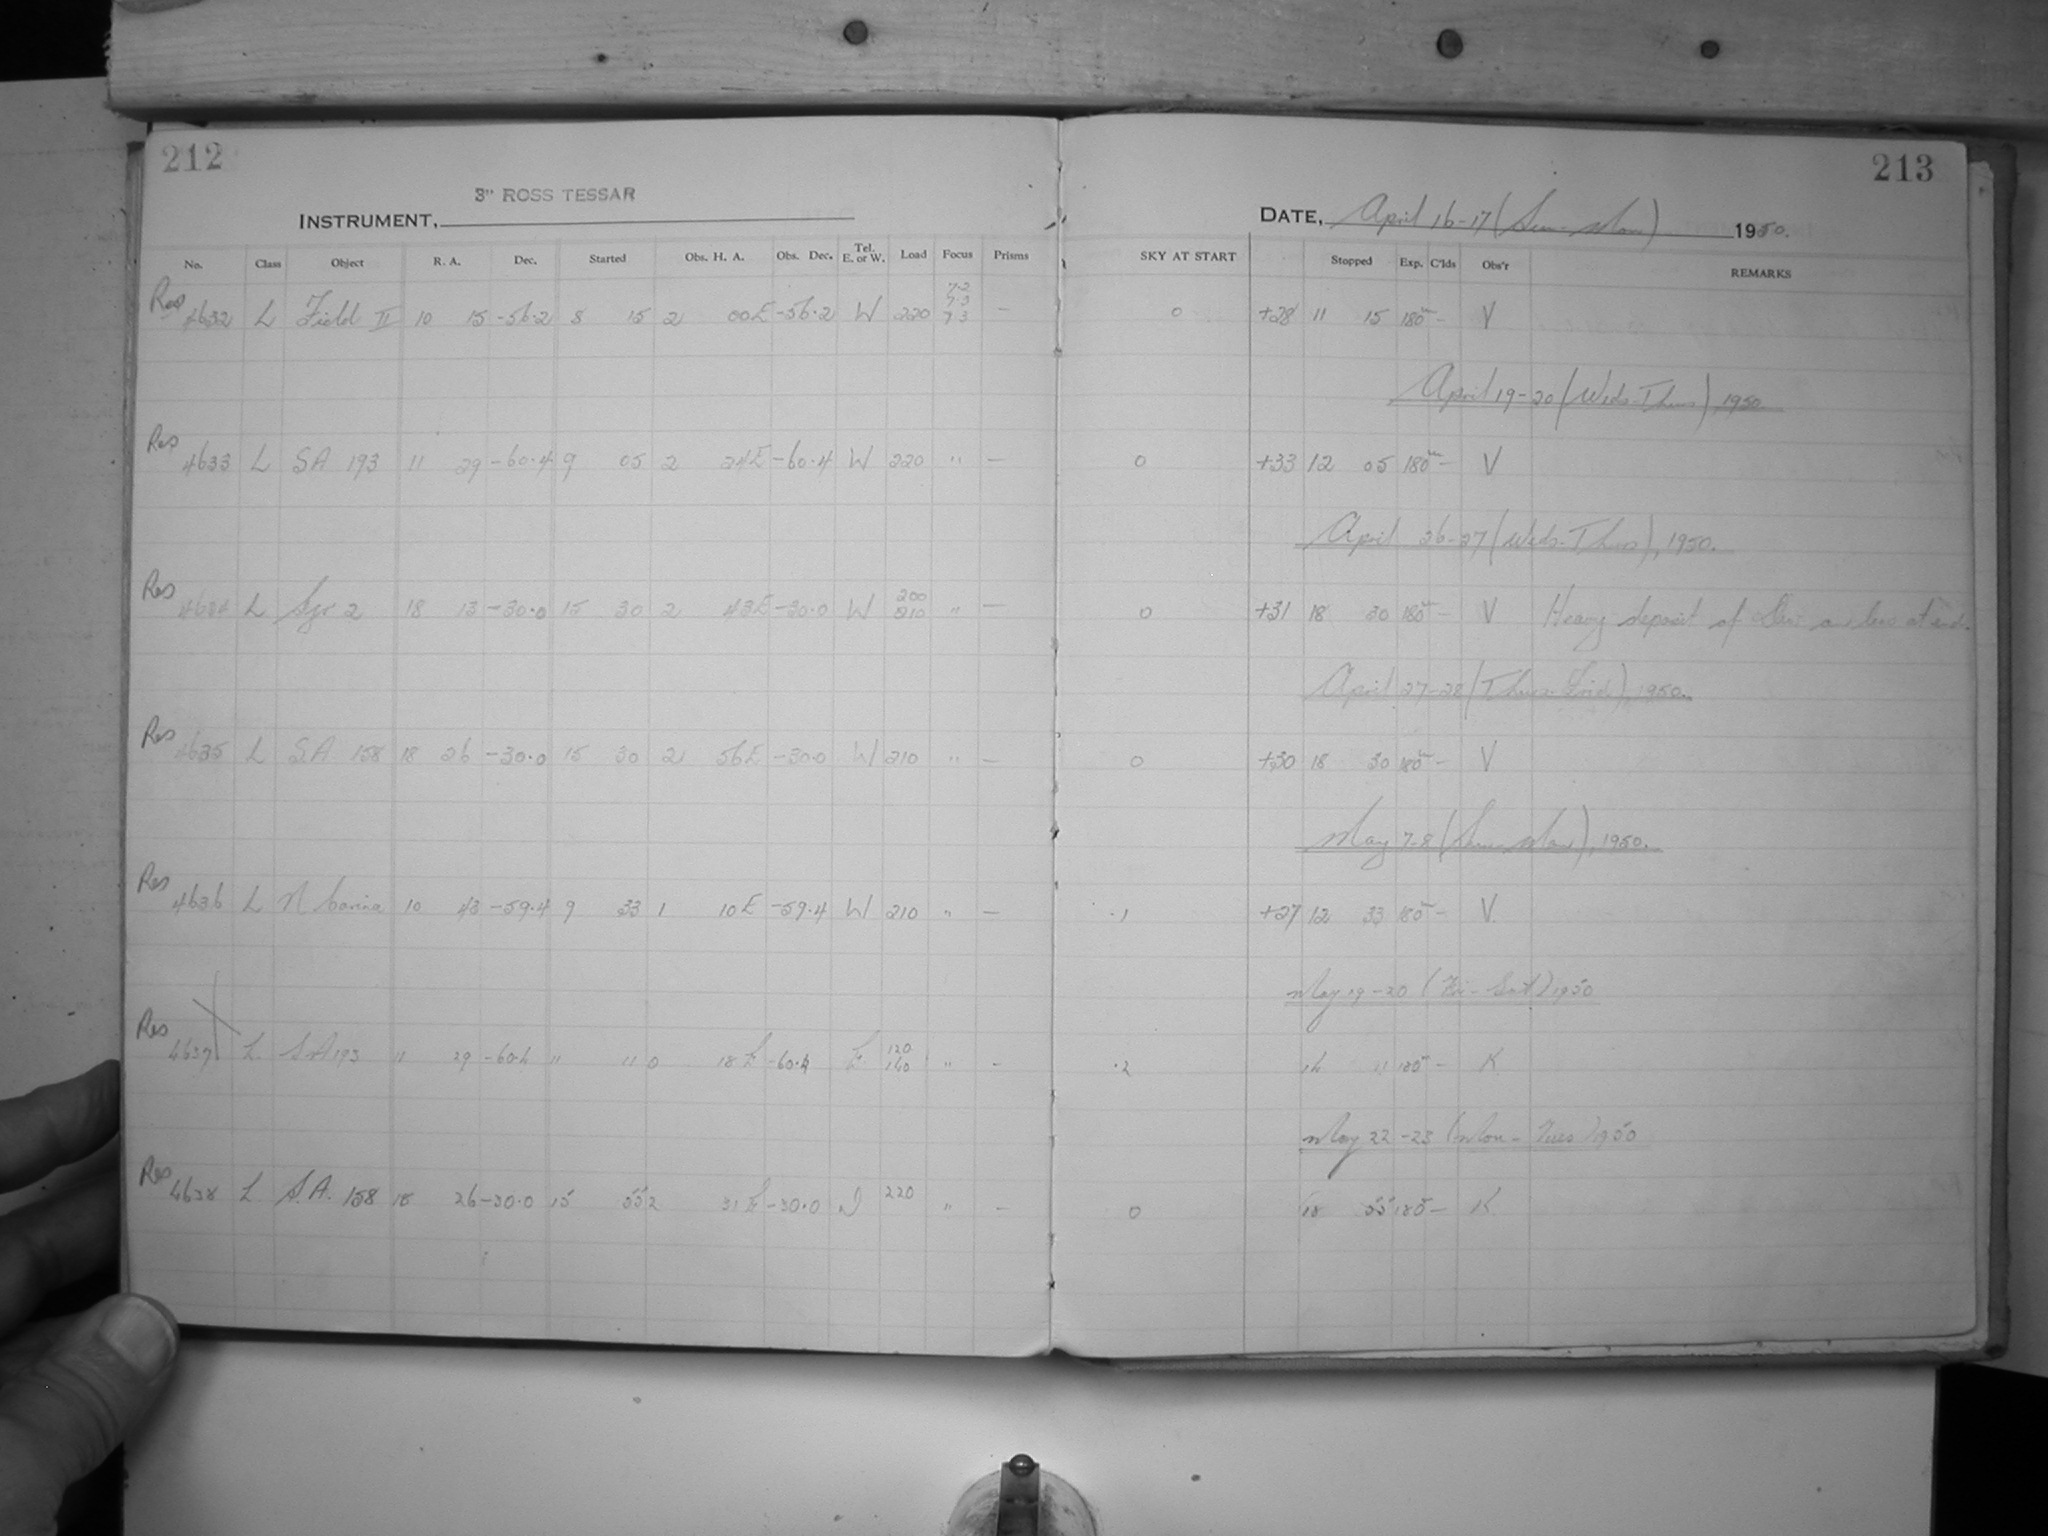 212
213
3" ROSS TESSAR
INSTRUMENT,
DATE, April 16-17 (Sun-Mon) 1950.
No. Class Object R. A. Dec. Started Obs. H. A. Obs. Dec. Tel. E. or W. Load Focus Prisms SKY AT START Stopped Exp. C'lds Obs'r REMARKS
Res 4632 L Field II 10 15 -56.2 8 15 2 00E -56.2 W 220 7.2 7.3 7.3 — 0 +28 11 15 180m — V
April 19-20 (Weds-Thurs), 1950
Res 4633 L SA 193 11 29 -60.4 9 05 2 24E -60.4 W 220 " — 0 +33 12 05 180m — V
April 26-27 (Weds-Thurs), 1950.
Res 4634 L Sgr 2 18 13 -30.0 15 30 2 43E -30.0 W 200 210 " — 0 +31 18 30 180m — V Heavy deposit of Dew on lens at end.
April 27-28 (Thurs-Frid), 1950.
Res 4635 L S.A. 158 18 26 -30.0 15 30 2 56E -30.0 W 210 " — 0 +30 18 30 180m — V
May 7-8 (Sun-Mon), 1950.
Res 4636 L N Carina 10 43 -59.4 9 33 1 10E -59.4 W 210 " — .1 +27 12 33 180m — V.
May 19-20 (Fri-Sat) 1950
Res 4637 L SA 193 11 29 -60.4 11 11 0 18E -60.4 E. 120 140 " — .2 14 11 180m — K.
May 22-23 (Mon-Tues) 1950
Res 4638 L S.A. 158 18 26 -30.0 15 55 2 31E -30.0 W 220 " — 0 18 55 180 — K